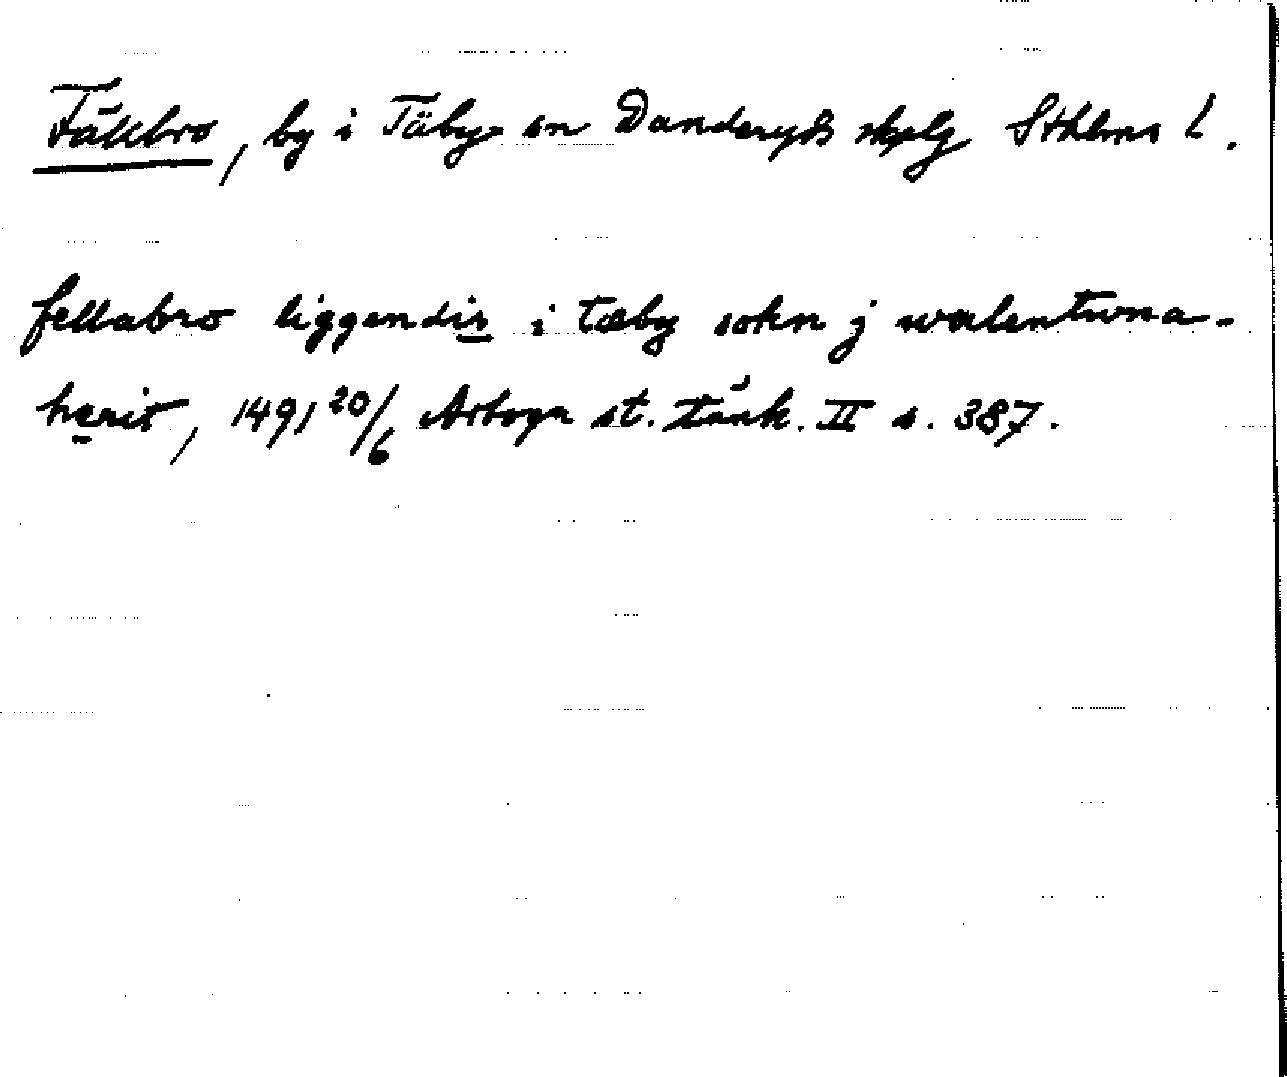 Fällbro, by i Täby sn Danderyds skplg Sthlms l.
fellabro liggendis i tæby sokn j walentwna-
herit, 1491 20/6 Arboga st. tänk. II s. 387.